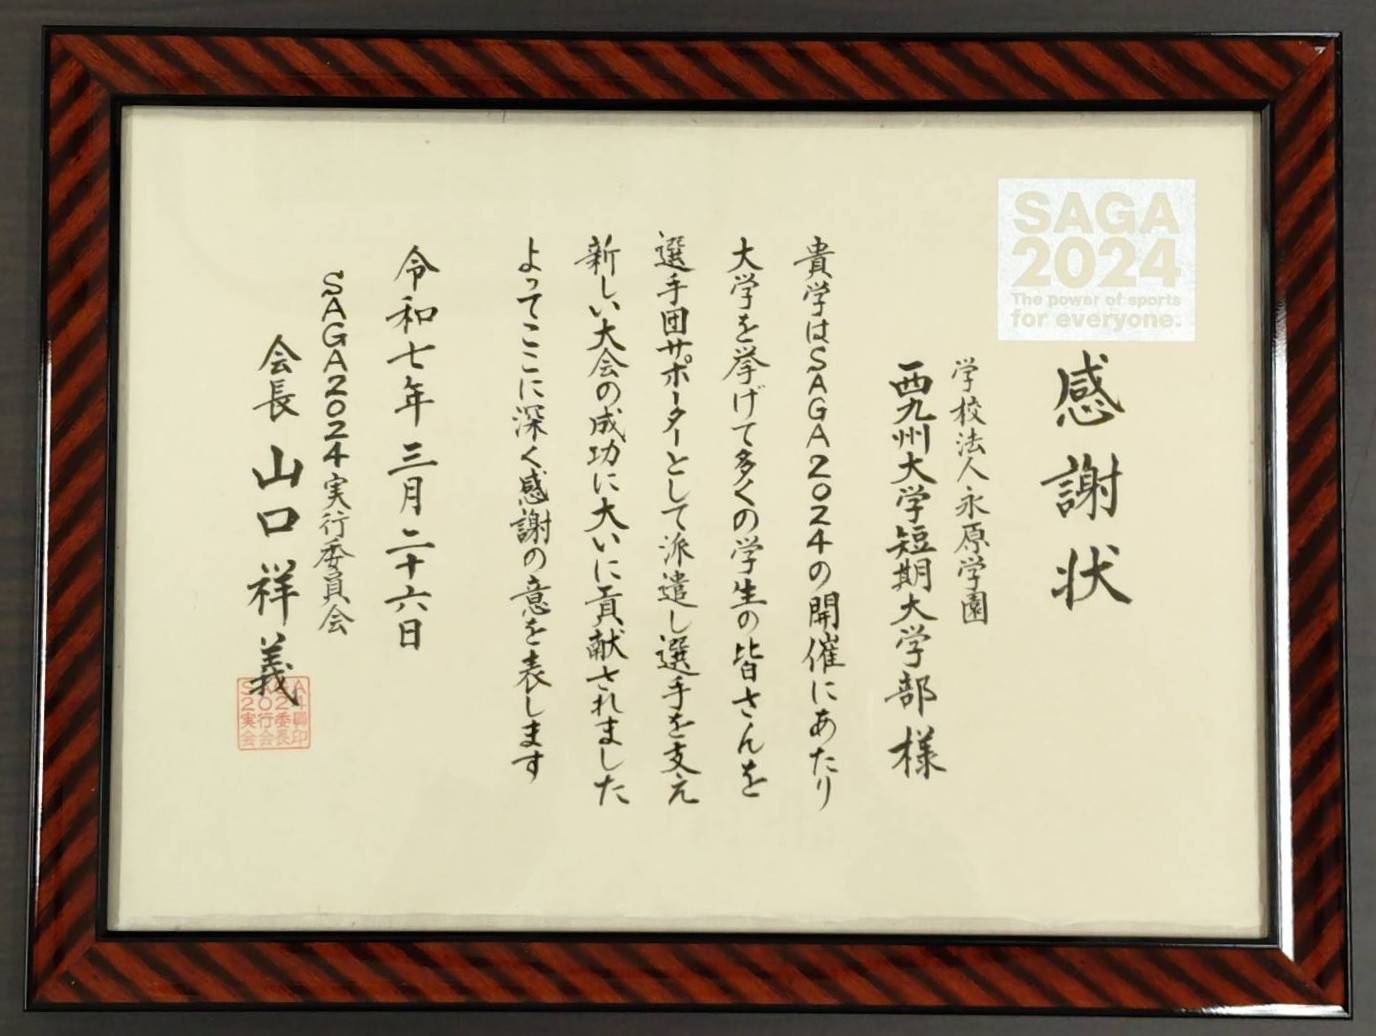 SAGA
2024
The power of sports
for everyone.
感謝状
学校法人永原学園
西九州大学短期大学部様
貴学はSAGA2024の開催にあたり
大学を挙げて多くの学生の皆さんを
選手団サポーターとして派遣し選手を支え
新しい大会の成功に大いに貢献されました
よってここに深く感謝の意を表します
令和七年三月二十六日
SAGA2024実行委員会
会長 山口祥義